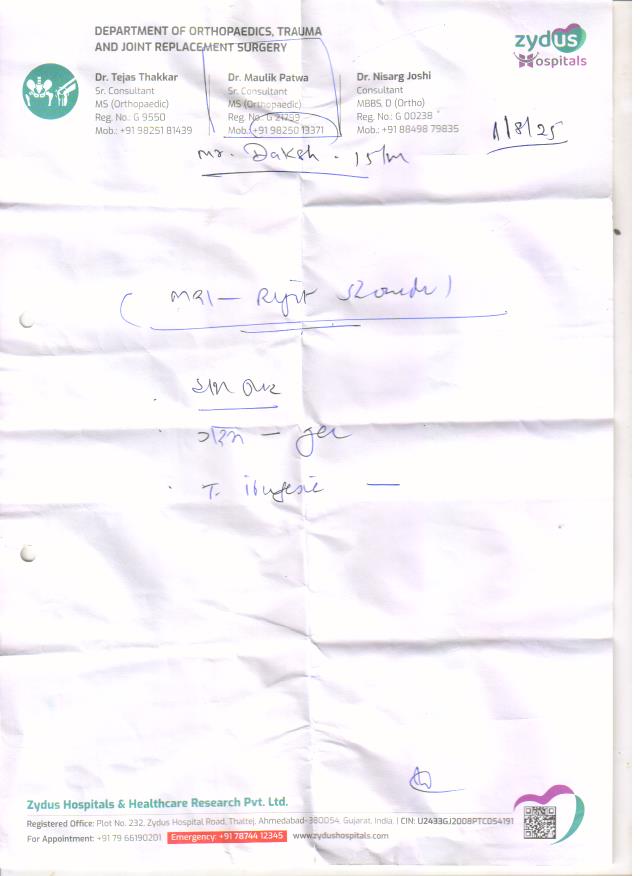 DEPARTMENT OF ORTHOPAEDICS, TRAUMA
AND JOINT REPLACEMENT SURGERY
zydus
Hospitals
Dr. Tejas Thakkar
Sr. Consultant
MS (Orthopaedic)
Reg. No.: G 9550
Mob.: +91 98251 81439
Dr. Maulik Patwa
Sr. Consultant
MS (Orthopaedic)
Reg. No.: G 21799
Mob.: +91 98250 13371
Dr. Nisarg Joshi
Consultant
MBBS, D (Ortho)
Reg. No.: G 00238
Mob.: +91 88498 79835
1/8/25
Mr. Daksh. 15/m
(MRI —
— gel
T.
Zydus Hospitals & Healthcare Research Pvt. Ltd.
Registered Office: Plot No. 232, Zydus Hospital Road, Thaltej, Ahmedabad-380054, Gujarat, India. | CIN: U2433GJ2008PTC054191
For Appointment: +91 79 66190201 Emergency: +91 78744 12345 www.zydushospitals.com